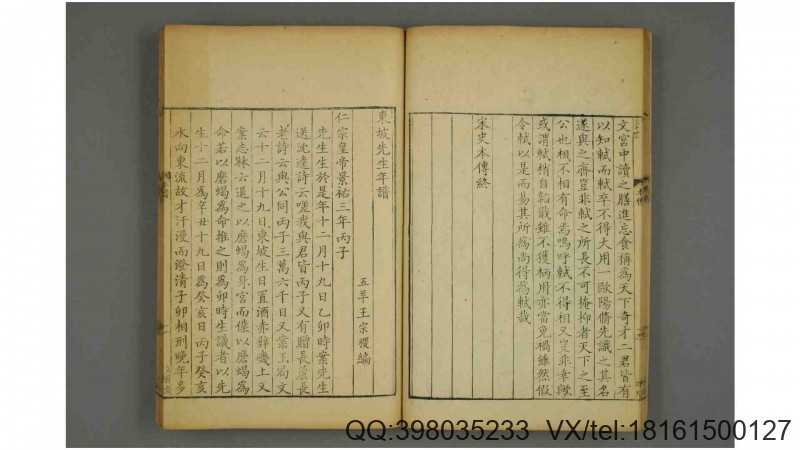 文宮中讀之膳進忘食稱為天下奇才二君皆有
以知軾而軾卒不得大用一歐陽脩先識之其名
遂與之齊豈非軾之所長不可掩抑者天下之至
公也相不相有命焉嗚呼軾不得相又豈非幸歟
或謂軾稍自韜戢雖不獲柄用亦當免禍雖然假
令軾以是而易其所為尚得為軾哉
宋史本傳終
東坡先生年譜
五羊王宗稷編
仁宗皇帝景祐三年丙子
先生生於是年十二月十九日乙卯時案先生
送沈逵詩云嗟我與君皆丙子又有贈長蘆長
老詩云與公同丙子三萬六千日又案玉局文
云十二月十九日東坡生日置酒赤壁磯上又
案志林云退之以磨蝎為身宮而僕以磨蝎為
命若以磨蝎為命推之則為卯時生議者以先
生十二月為辛丑十九日為癸亥日丙子癸亥
水向東流故才汗漫而澄清子卯相刑晚年多
QQ:398035233 VX/tel:18161500127